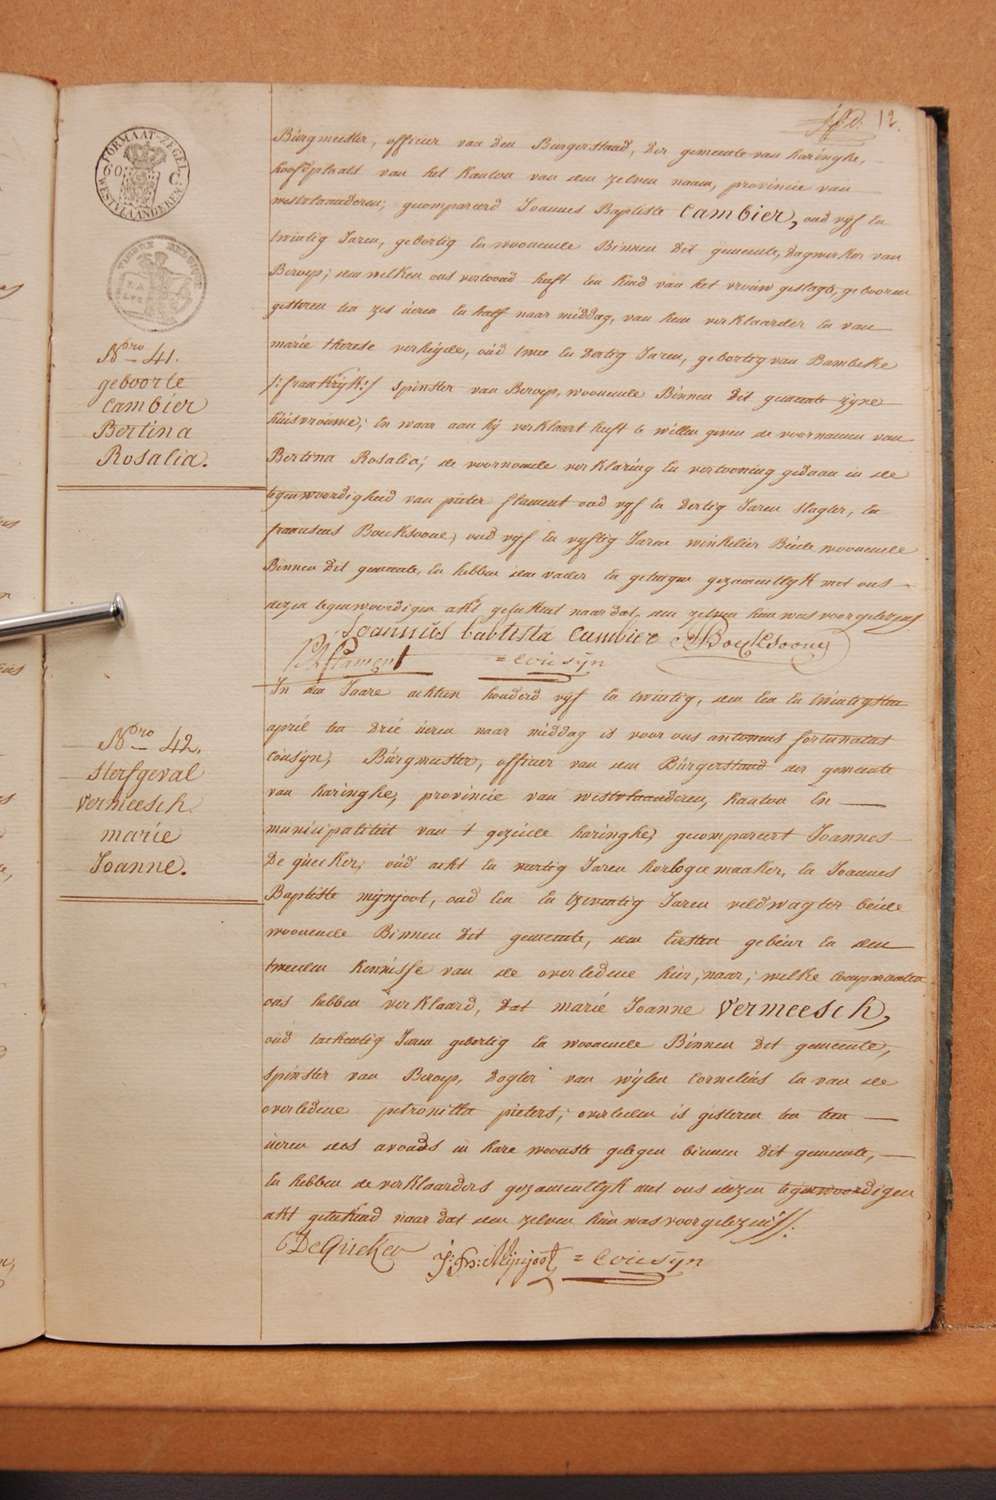 12.
FORMAAT-ZEGEL
60 C
WESTVLAANDEREN
Nro 41.
geboorte
Cambier
Bertina
Rosalia.
Burgmeester, officier van den Burgerstand, der gemeente van haringhe,
hoofdplaats van het kanton van den zelven naam, provincie van
westvlaanderen; gecompareerd Joannes Baptiste Cambier, oud vyf en
twintig Jaren, gebortig en woonende Binnen dit gemeente, dagwerker van
Beroep; den welken ons vertoond heeft een kind van het vrouw geslagt, gebooren
gisteren ten zes uren en half naar middag, van hem verklaarder en van
marie therese verheyde, oud twee en dertig Jaren, gebortig van Bambeke
/: frankryk :/ spinster van Beroep, woonende Binnen dit gemeente zyne
huisvrouwe; en waar aan hy verklaart heeft te willen geven de voornamen van
Bertina Rosalia; de voornoemde verklaring en vertooning gedaan in de
tegenwoordigheid van pieter flament oud vyf en dertig Jaren slagter, en
franciscus Boucksoone, oud vyf en vyftig Jaren winkelier Beide woonende
Binnen dit gemeente, en hebben den vader en getuigen gezamentlyk met ons
dezen tegenwoordigen akt geteekent naar dat den zelven hun was voorgelezen
Joannes babtista Cambier Boucksoone
P flament = Cousyn
Nro 42.
sterfgeval
Vermeesch
marie
Joanne.
In den Jaare achtien honderd vyf en twintig, den een en twintigsten
april ten drie uren naar middag is voor ons antonius fortunatus
Cousyn, Burgmeester, officier van den Burgerstand der gemeente
van haringhe, provincie van westvlaanderen, kanton en
municipaliteit van t gezeide haringhe, gecompareert Joannes
De quecker, oud acht en veertig Jaren horlogie maaker, en Joannes
Baptiste mynjoot, oud een en tzeventig Jaren veldwagter beide
woonende Binnen dit gemeente, den eersten gebeur en den
tweeden kennisse van de overledene hier, naar, welke comparanten
ons hebben verklaard, dat marie Joanne Vermeesch,
oud tachentig Jaren gebortig en woonende Binnen dit gemeente,
spinster van Beroep, dogter van wylen Cornelius en van de
overledene petronilla pieters; overleden is gisteren ten tien
uren des avonds in hare woonste gelegen binnen dit gemeente,
en hebben de verklaarders gezamentlyk met ons dezen tegenwoordigen
akt geteekend naar dat den zelven hun was voorgelezen //.
DeQuecker J: B: Mynjoot = Cousyn